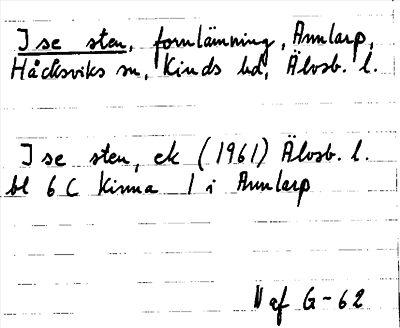 Ise sten, fornlämning, Annlarp,
Håcksviks sn, Kinds hd, Älvsb. l.
Ise sten, ek (1961) Älvsb. l.
bl 6 C Kinna 1 i Annlarp
af G-62